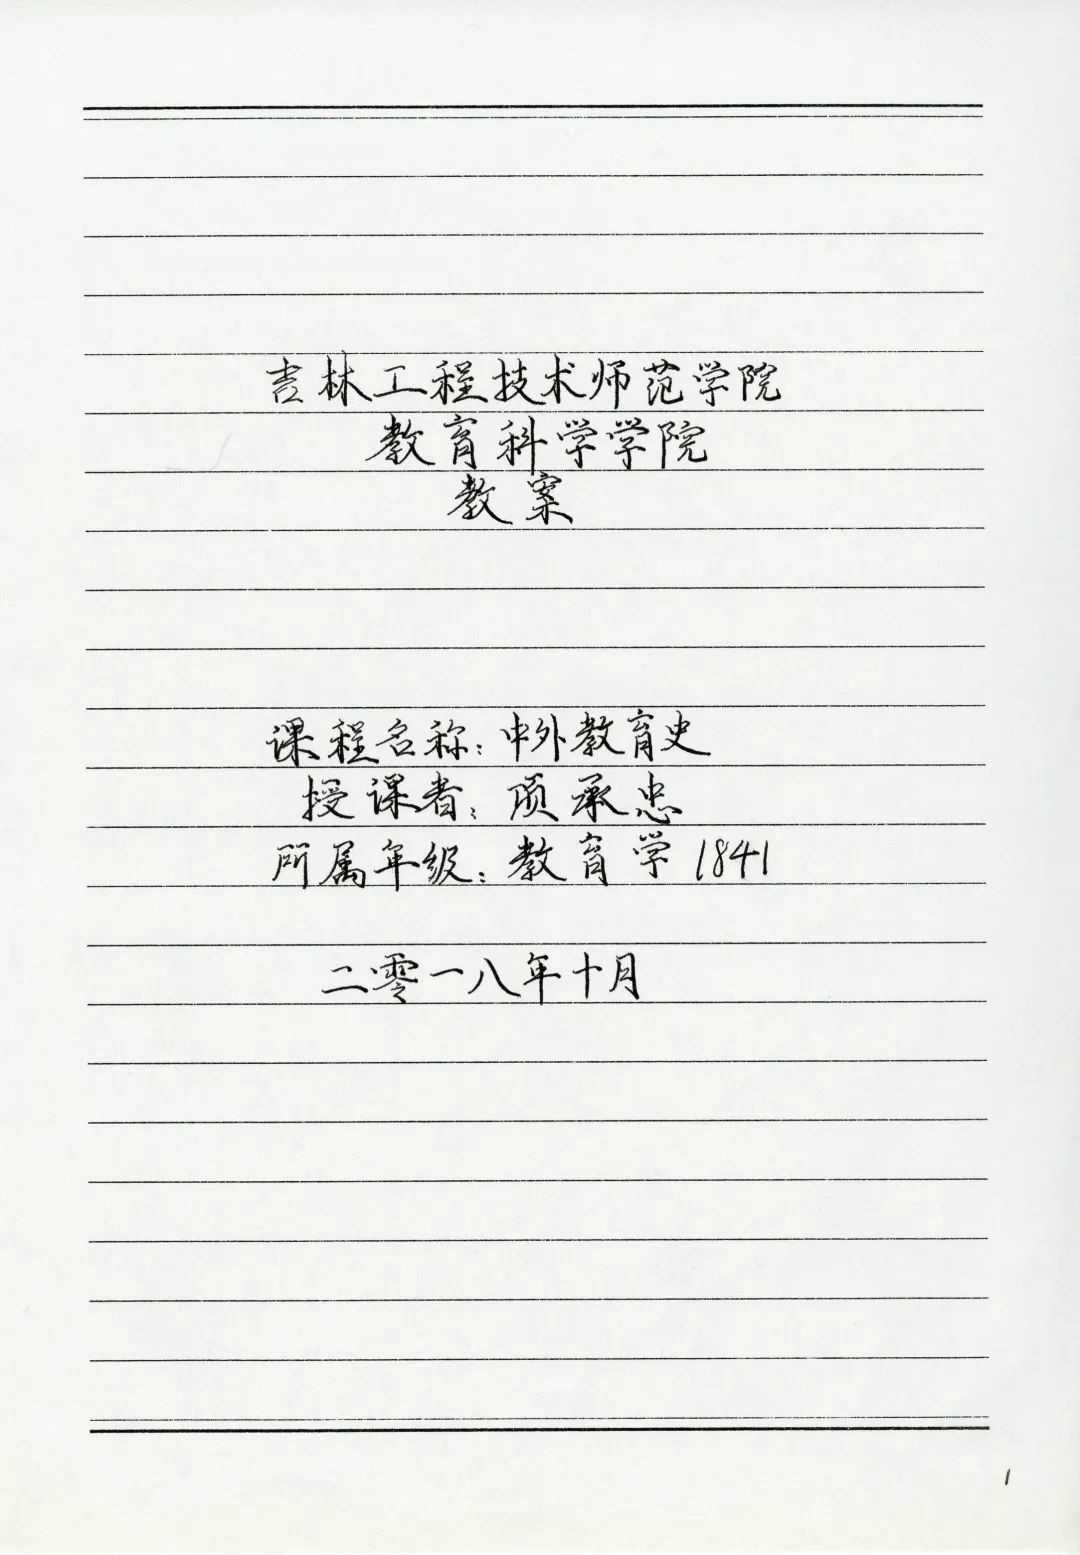 吉林工程技术师范学院
教育科学学院
教案
课程名称：中外教育史
授课者：项承忠
所属年级：教育学1841
二零一八年十月
1